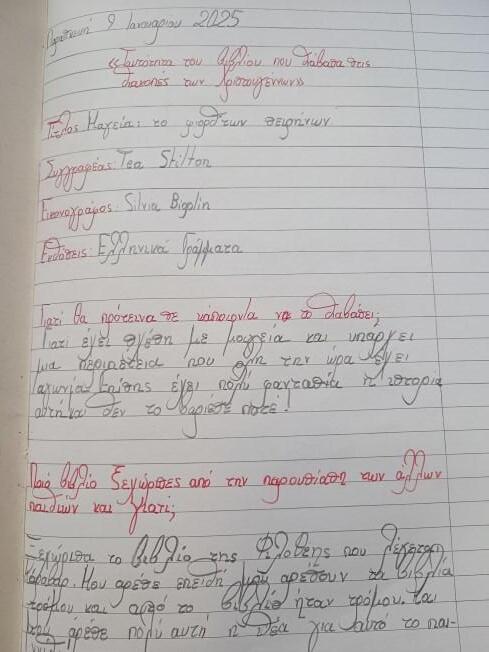 Παρασκευή 9 Ιανουαρίου 2025
«Ταυτότητα του βιβλίου που διάβασα στις
διακοπές των Χριστουγέννων»
Τίτλος: Μαγεία: το φιορδ των σειρήνων
Συγγραφέας: Tea Stilton
Εικονογράφος: Silvia Bigolin
Εκδόσεις: Ελληνικά Γράμματα
Γιατί θα πρότεινα σε κάποιον/α να το διαβάσει;
Γιατί έχει σχέση με μαγεία και υπάρχει
μια περιπέτεια που όλη την ώρα έχει
αγωνία. Επίσης έχει πολύ φαντασία η ιστορία
αυτή και δεν το βαριέσαι ποτέ!
Ποιό βιβλίο ξεχώρισες από την παρουσίαση των άλλων
παιδιών και γιατί;
Ξεχώρισα το βιβλίο της Φιλοθέης που λέγεται
Μου άρεσε επειδή μου αρέσουν τα βιβλία
τρόμου και αυτό το βιβλίο ήταν τρόμου. Και
μου άρεσε πολύ αυτή η ιδέα για αυτό το παι-